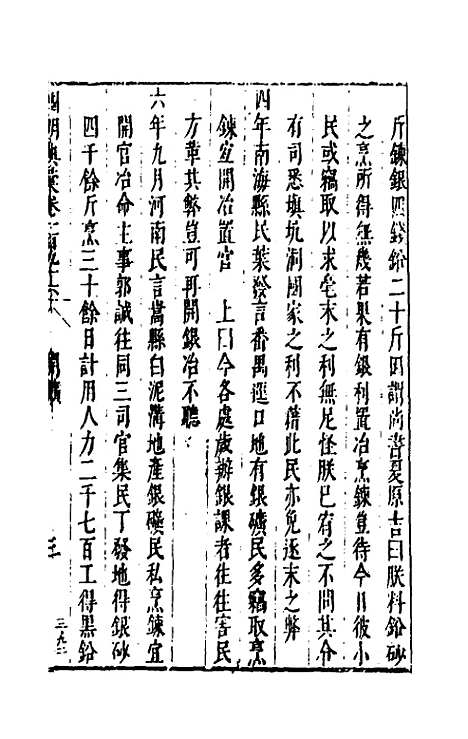 斤鍊銀四錢鉛二十斤因謂尚書夏原吉曰朕料鉛砂
之烹所得無幾若果有銀利置冶烹鍊豈待今日彼小
民或竊取以求毫末之利無足怪朕已宥之不問其令
有司悉填坑洞國家之利不藉此民亦免逐末之弊
四年南海縣民葉發言番禺逕口地有銀礦民多竊取烹
鍊宜開冶置官　上曰今各處歲辦銀課者往往害民
方革其弊豈可再開銀冶不聽
六年九月河南民言嵩縣白泥溝地產銀礦民私烹鍊宜
開官冶命主事郭誠往同三司官集民丁發地得銀砂
四千餘斤烹三十餘日計用人力二千七百工得黑鉛